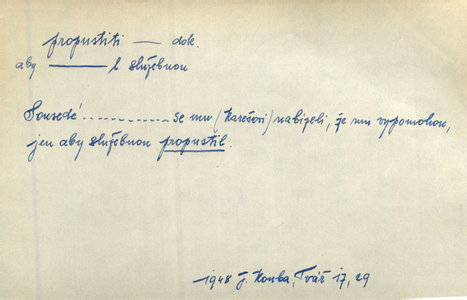 propustiti — dok.
aby ——— l služebnou
Sousedé ............... se mu (Karešovi) nabízeli, že mu vypomohou,
jen aby služebnou propustil.
1948 J. Kouba, Tvář 17, 29